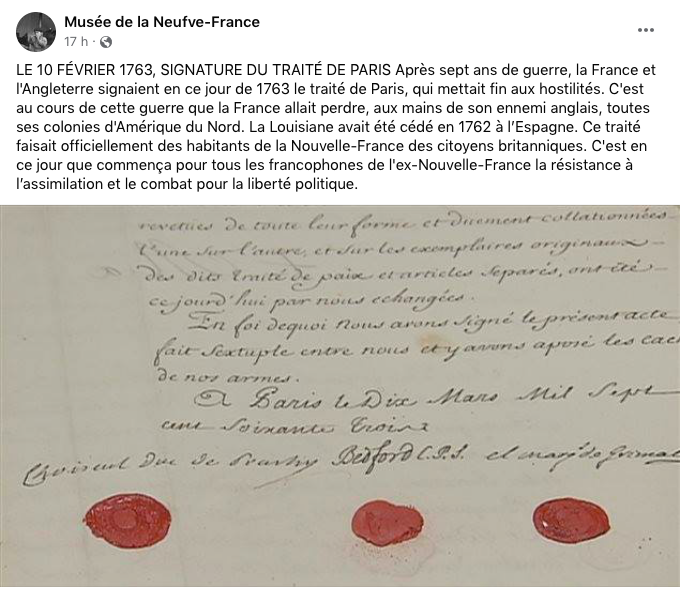 Musée de la Neufve-France
17 h ·
LE 10 FÉVRIER 1763, SIGNATURE DU TRAITÉ DE PARIS Après sept ans de guerre, la France et
l'Angleterre signaient en ce jour de 1763 le traité de Paris, qui mettait fin aux hostilités. C'est
au cours de cette guerre que la France allait perdre, aux mains de son ennemi anglais, toutes
ses colonies d'Amérique du Nord. La Louisiane avait été cédé en 1762 à l’Espagne. Ce traité
faisait officiellement des habitants de la Nouvelle-France des citoyens britanniques. C'est en
ce jour que commença pour tous les francophones de l'ex-Nouvelle-France la résistance à
l’assimilation et le combat pour la liberté politique.
revetües de toute leur forme et duement collationnées
l'une sur l'autre, et sur les exemplaires originaux
des dits traité de paix et articles separés, ont été
ce jourd'hui par nous echangées.
En foi dequoi nous avons signé le présent acte
fait sextuple entre nous et y avons aposé les cac
de nos armes.
A Paris le Dix Mars Mil Sept
cent soixante trois
Choiseul Duc de Praslin Bedford C.P.S. el marq.s de Grimal